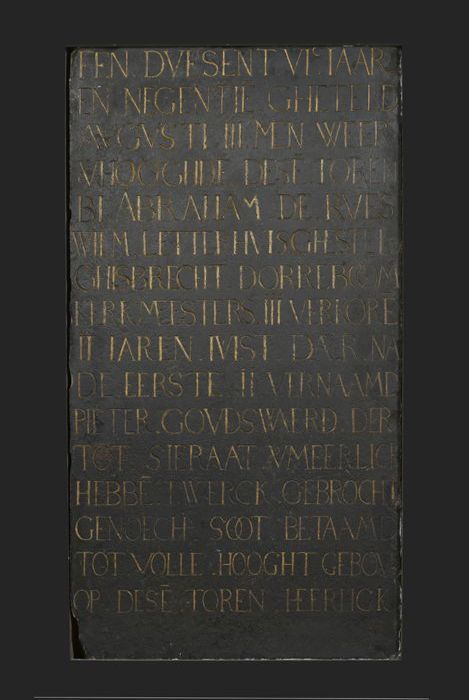 EEN DVESENT VI^C IAAR
EN NEGENTIE GHETELD
AVGVSTI III MEN WEER
VHOOGHDĒ DESĒ TOREN
BI ABRAHAM DE RVES
WILM LETTEHVIS GHESTEL
GHISBRECHT DORREBOOM
KERKMEISTERS III VERLORĒ
II IAREN IVIST DAER NA
DE EERSTE II VERNAAMD
PIETER GOVDSWAERD DER
TOT SIERAAT VMEERLICK
HEBBĒ TWERCK GEBROCHT
GENOECH SOOT BETAAMD
TOT VOLLE HOOGHT GEBOV
OP DESĒ TOREN HEERLICK